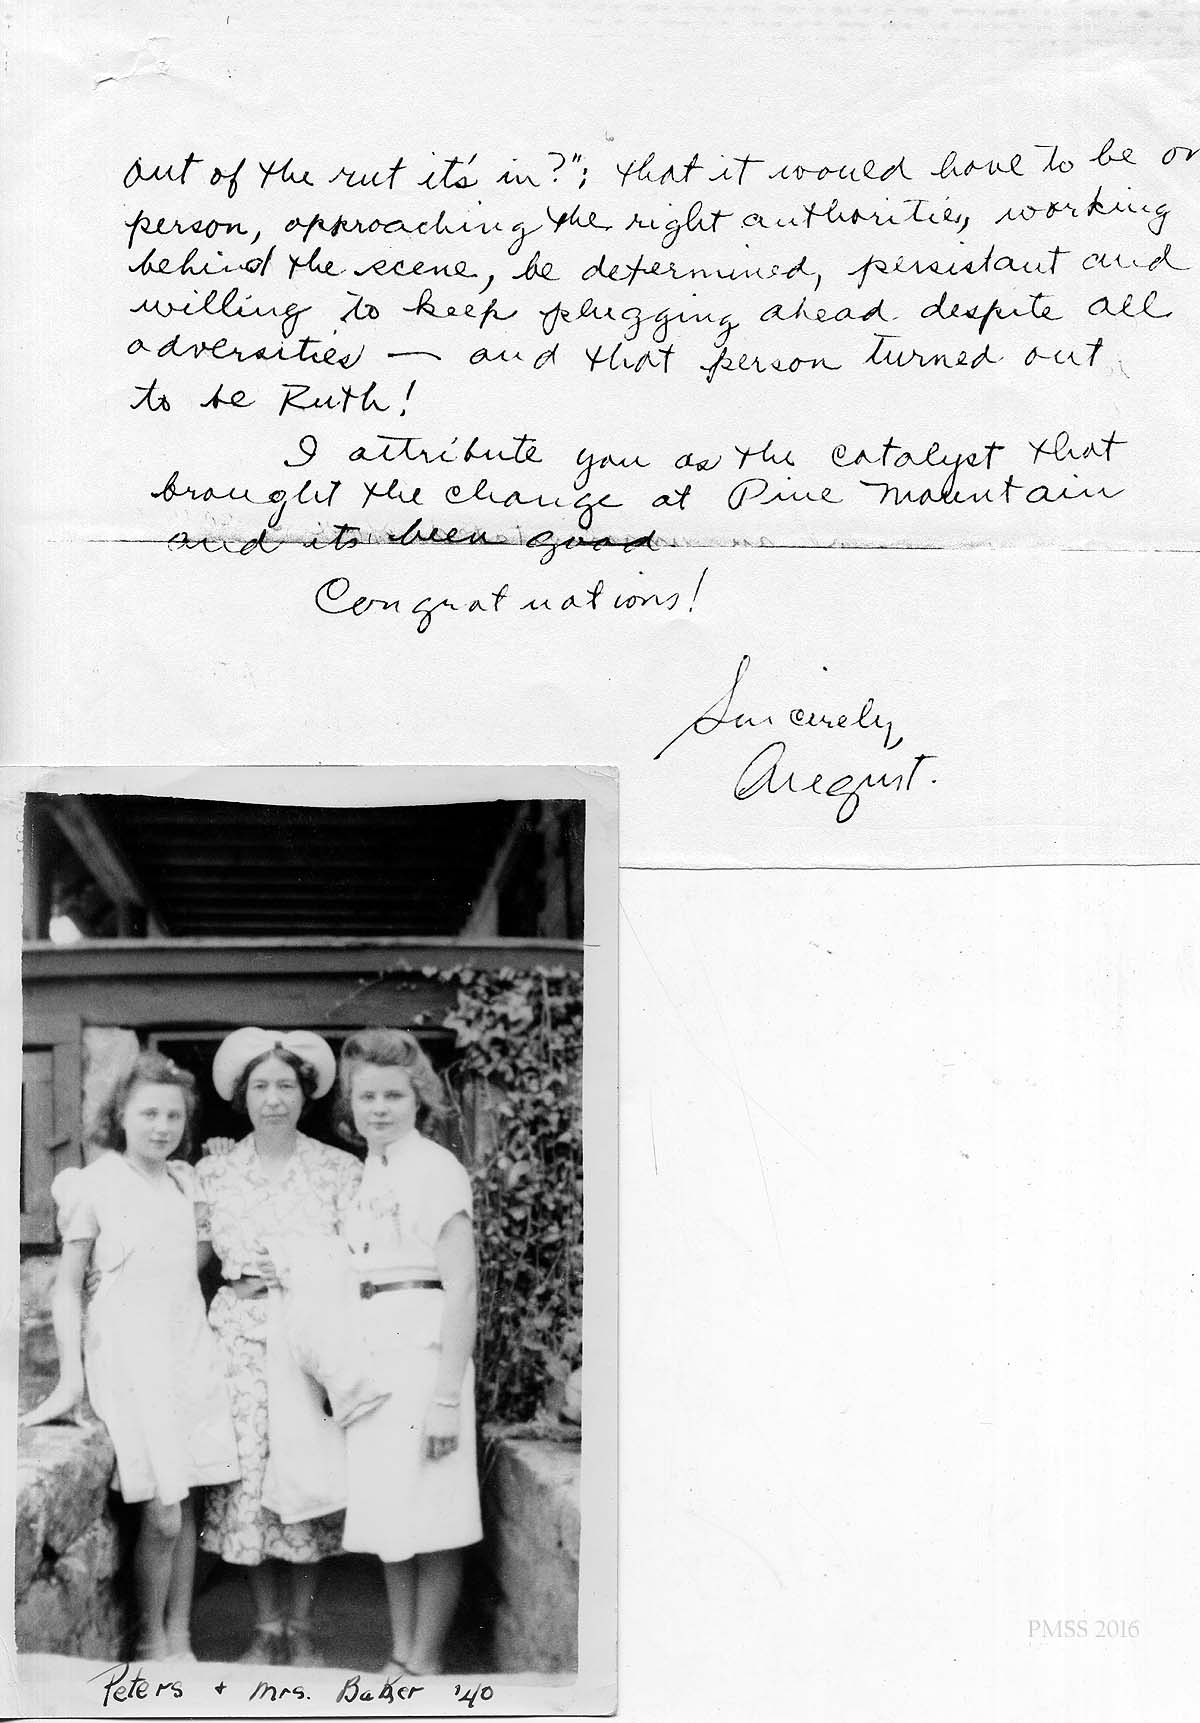 out of the rut it's in?"; that it would have to be on
person, approaching the right authorities, working
behind the scene, be determined, persistant and
willing to keep plugging ahead despite all
adversities — and that person turned out
to be Ruth!
I attribute you as the catalyst that
brought the change at Pine Mountain
and its been good
Congratuations!
Sincirely,
August.
Peters + Mrs. Baker '40
PMSS 2016